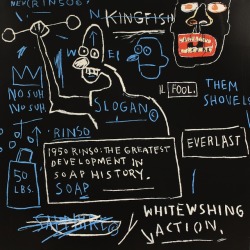 KINGFISH
NO SUH
NO SUH
SLOGAN©
FOOL.
THEM
SHOVELS
RINSO
1950 RINSO: THE GREATEST
DEVELOPMENT IN
SOAP HISTORY.
SOAP
EVERLAST
50
LBS.
WHITEWSHING
ACTION.